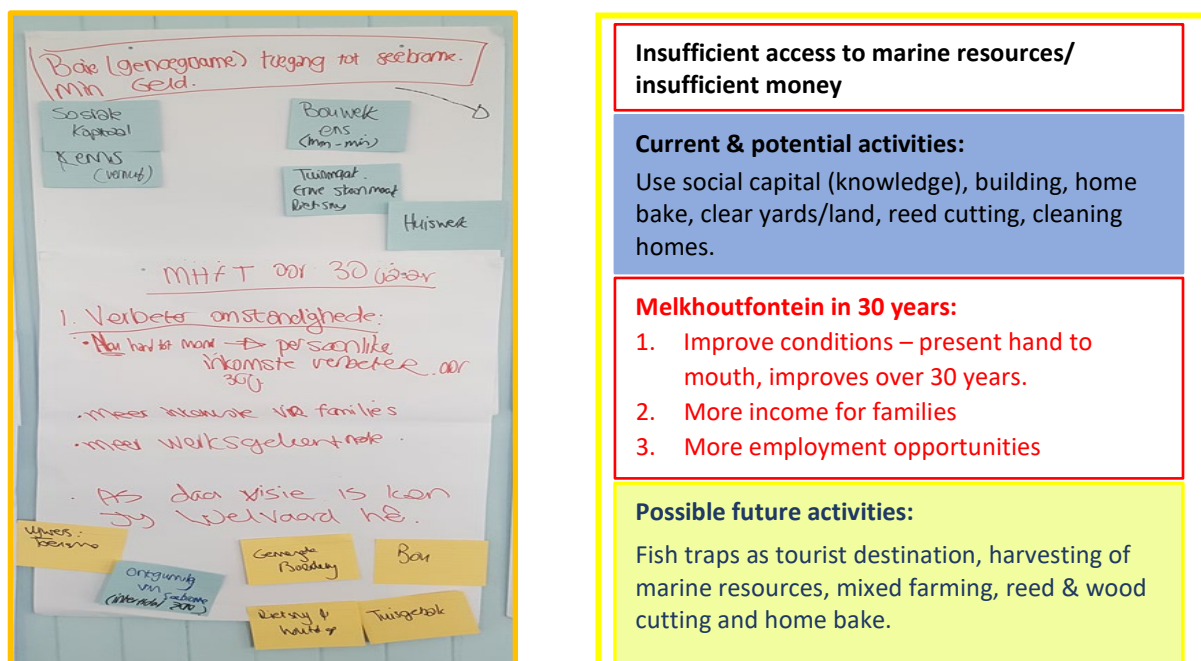 Baie (genoegsame) toegang tot seebronne.
Min Geld.
Sosiale
Kapitaal
Kennis
(vernuf)
Bouwerk
ens
(mm-min)
Tuinmaat
Erwe skoonmaak
Rietsny
Huiswerk
MHFT oor 30 jaar
1. Verbeter omstandighede:
• Nou hand tot mond → persoonlike
inkomste verbeter oor
30j
• meer inkomste vir families
• meer werksgeleenthede.
• As daar visie is kan
jy Welvaard hê.
Toerisme
Ontginning
van seebronne
(intertidal zone)
Gemengde
Boerdery
Bou
Rietsny &
Tuisgebak
Insufficient access to marine resources/
insufficient money
Current & potential activities:
Use social capital (knowledge), building, home
bake, clear yards/land, reed cutting, cleaning
homes.
Melkhoutfontein in 30 years:
1. Improve conditions – present hand to
mouth, improves over 30 years.
2. More income for families
3. More employment opportunities
Possible future activities:
Fish traps as tourist destination, harvesting of
marine resources, mixed farming, reed & wood
cutting and home bake.